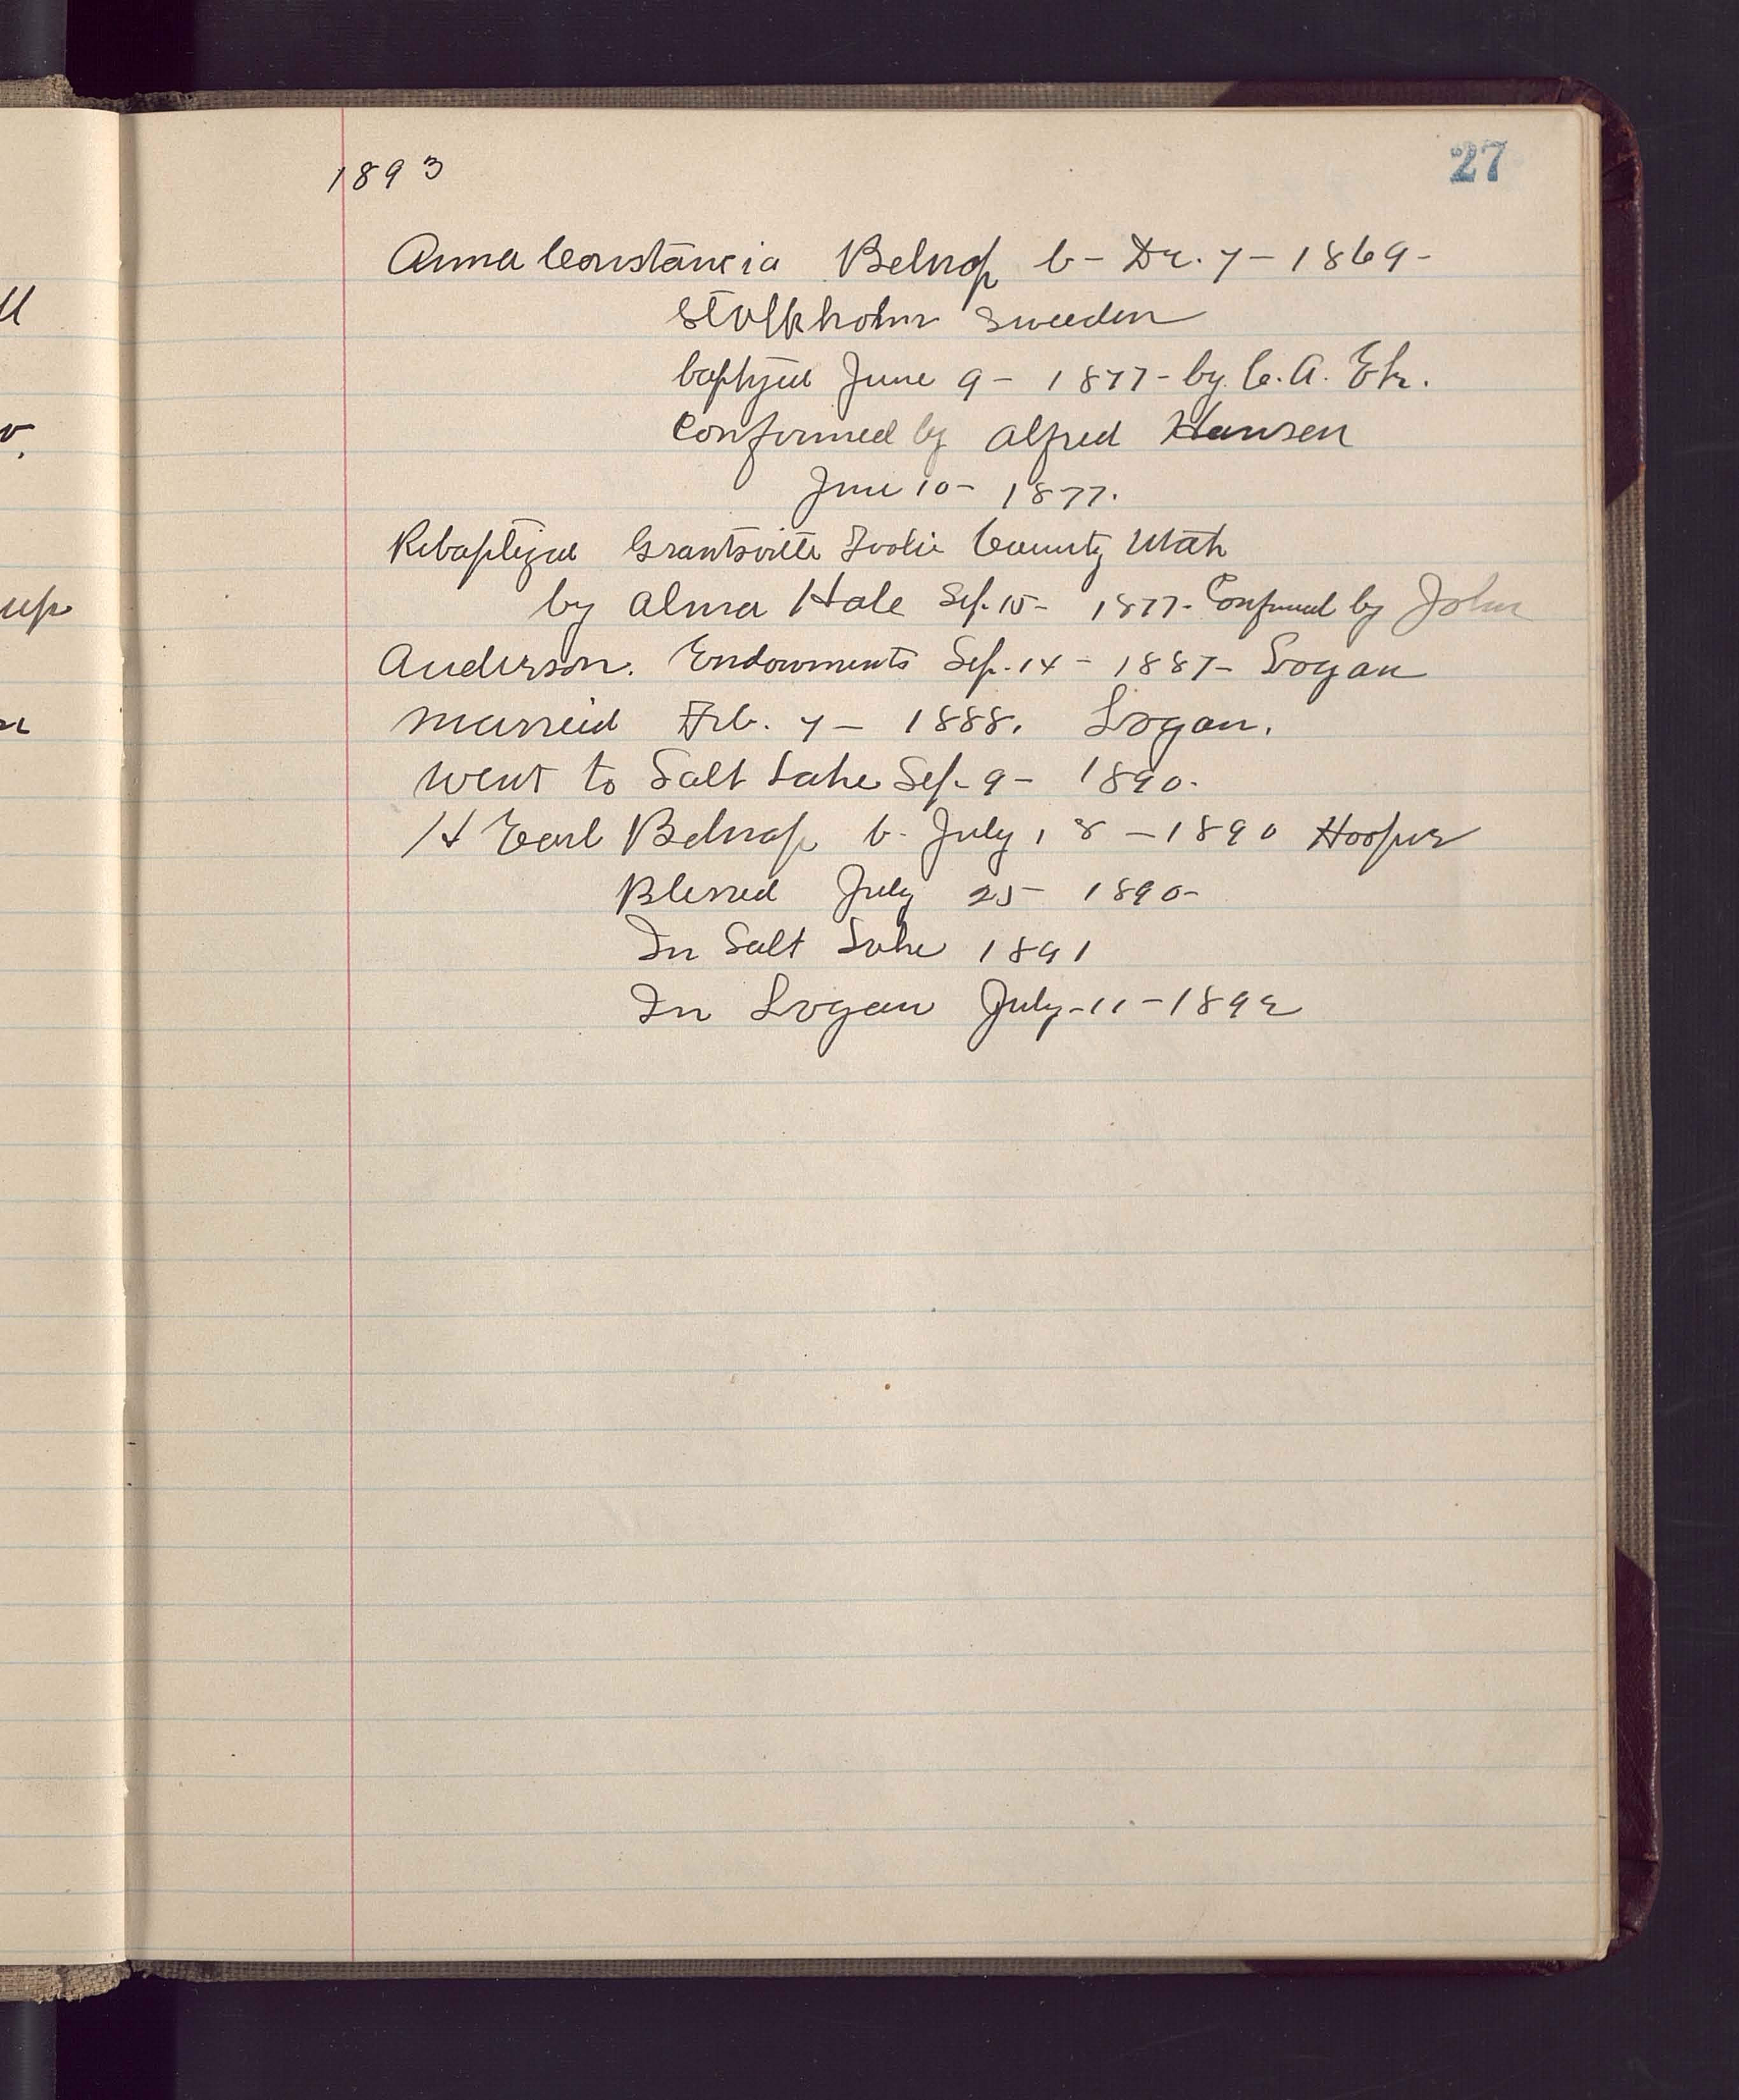 27
1893
Anna Constancia Belnap b- De. 7- 1869-
Stolkholm Sweeden
baptized June 9- 1877- by C. A. Ek.
Confirmed by Alfred Hansen
June 10- 1877.
Rebaptized Grantsville Tooele County Utah
by Alma Hale Sep. 15- 1877- Confirmed by John
Anderson. Endowments Sep. 14- 1887- Logan
married Feb. 7- 1888. Logan.
Went to Salt Lake Sep- 9- 1890-
H Earl Belnap b- July 18 -1890 Hooper
Blessed July 25- 1890-
In Salt Lake 1891
In Logan July-11-1892